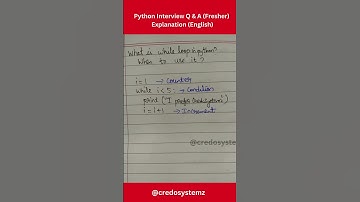 Python Interview Q & A (Fresher)
Explanation (English)
What is while loop in python?
When to use it?
i=1 → Counter
while i<5: → Condition
print ("I prefer Credosystemz")
i=i+1 → Increment
@credosystemz
@credosystemz